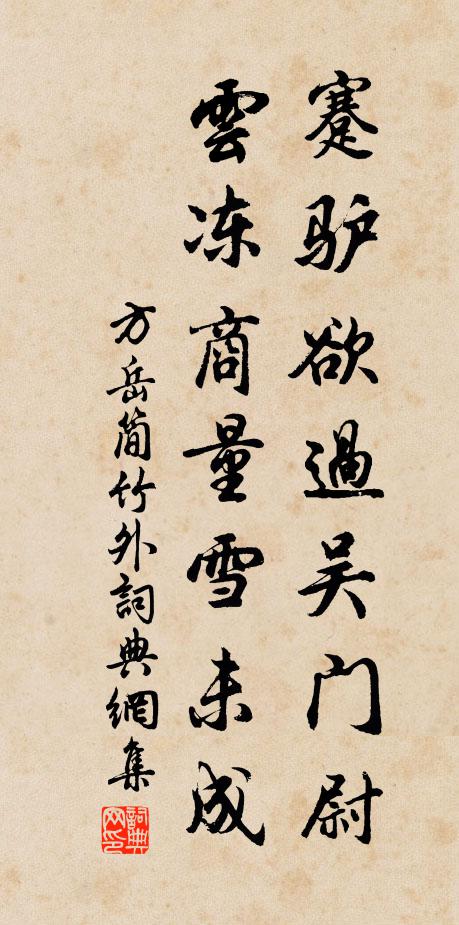 蹇驴欲過吴门尉
雲冻商量雪未成
方岳簡竹外詞典網集
詞典网印